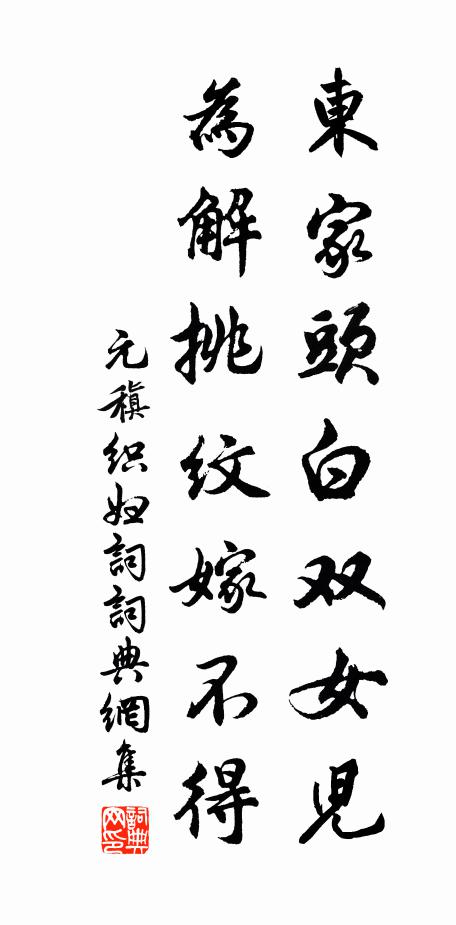 東家頭白双女児
為解挑紋嫁不得
元稹织妇詞詞典網集
詞典
网印